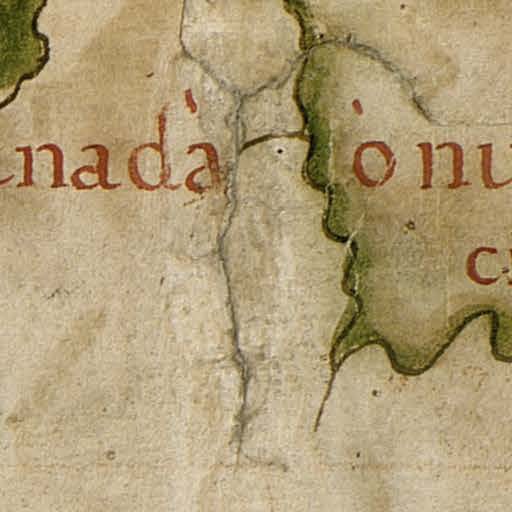 nadà ònu
c